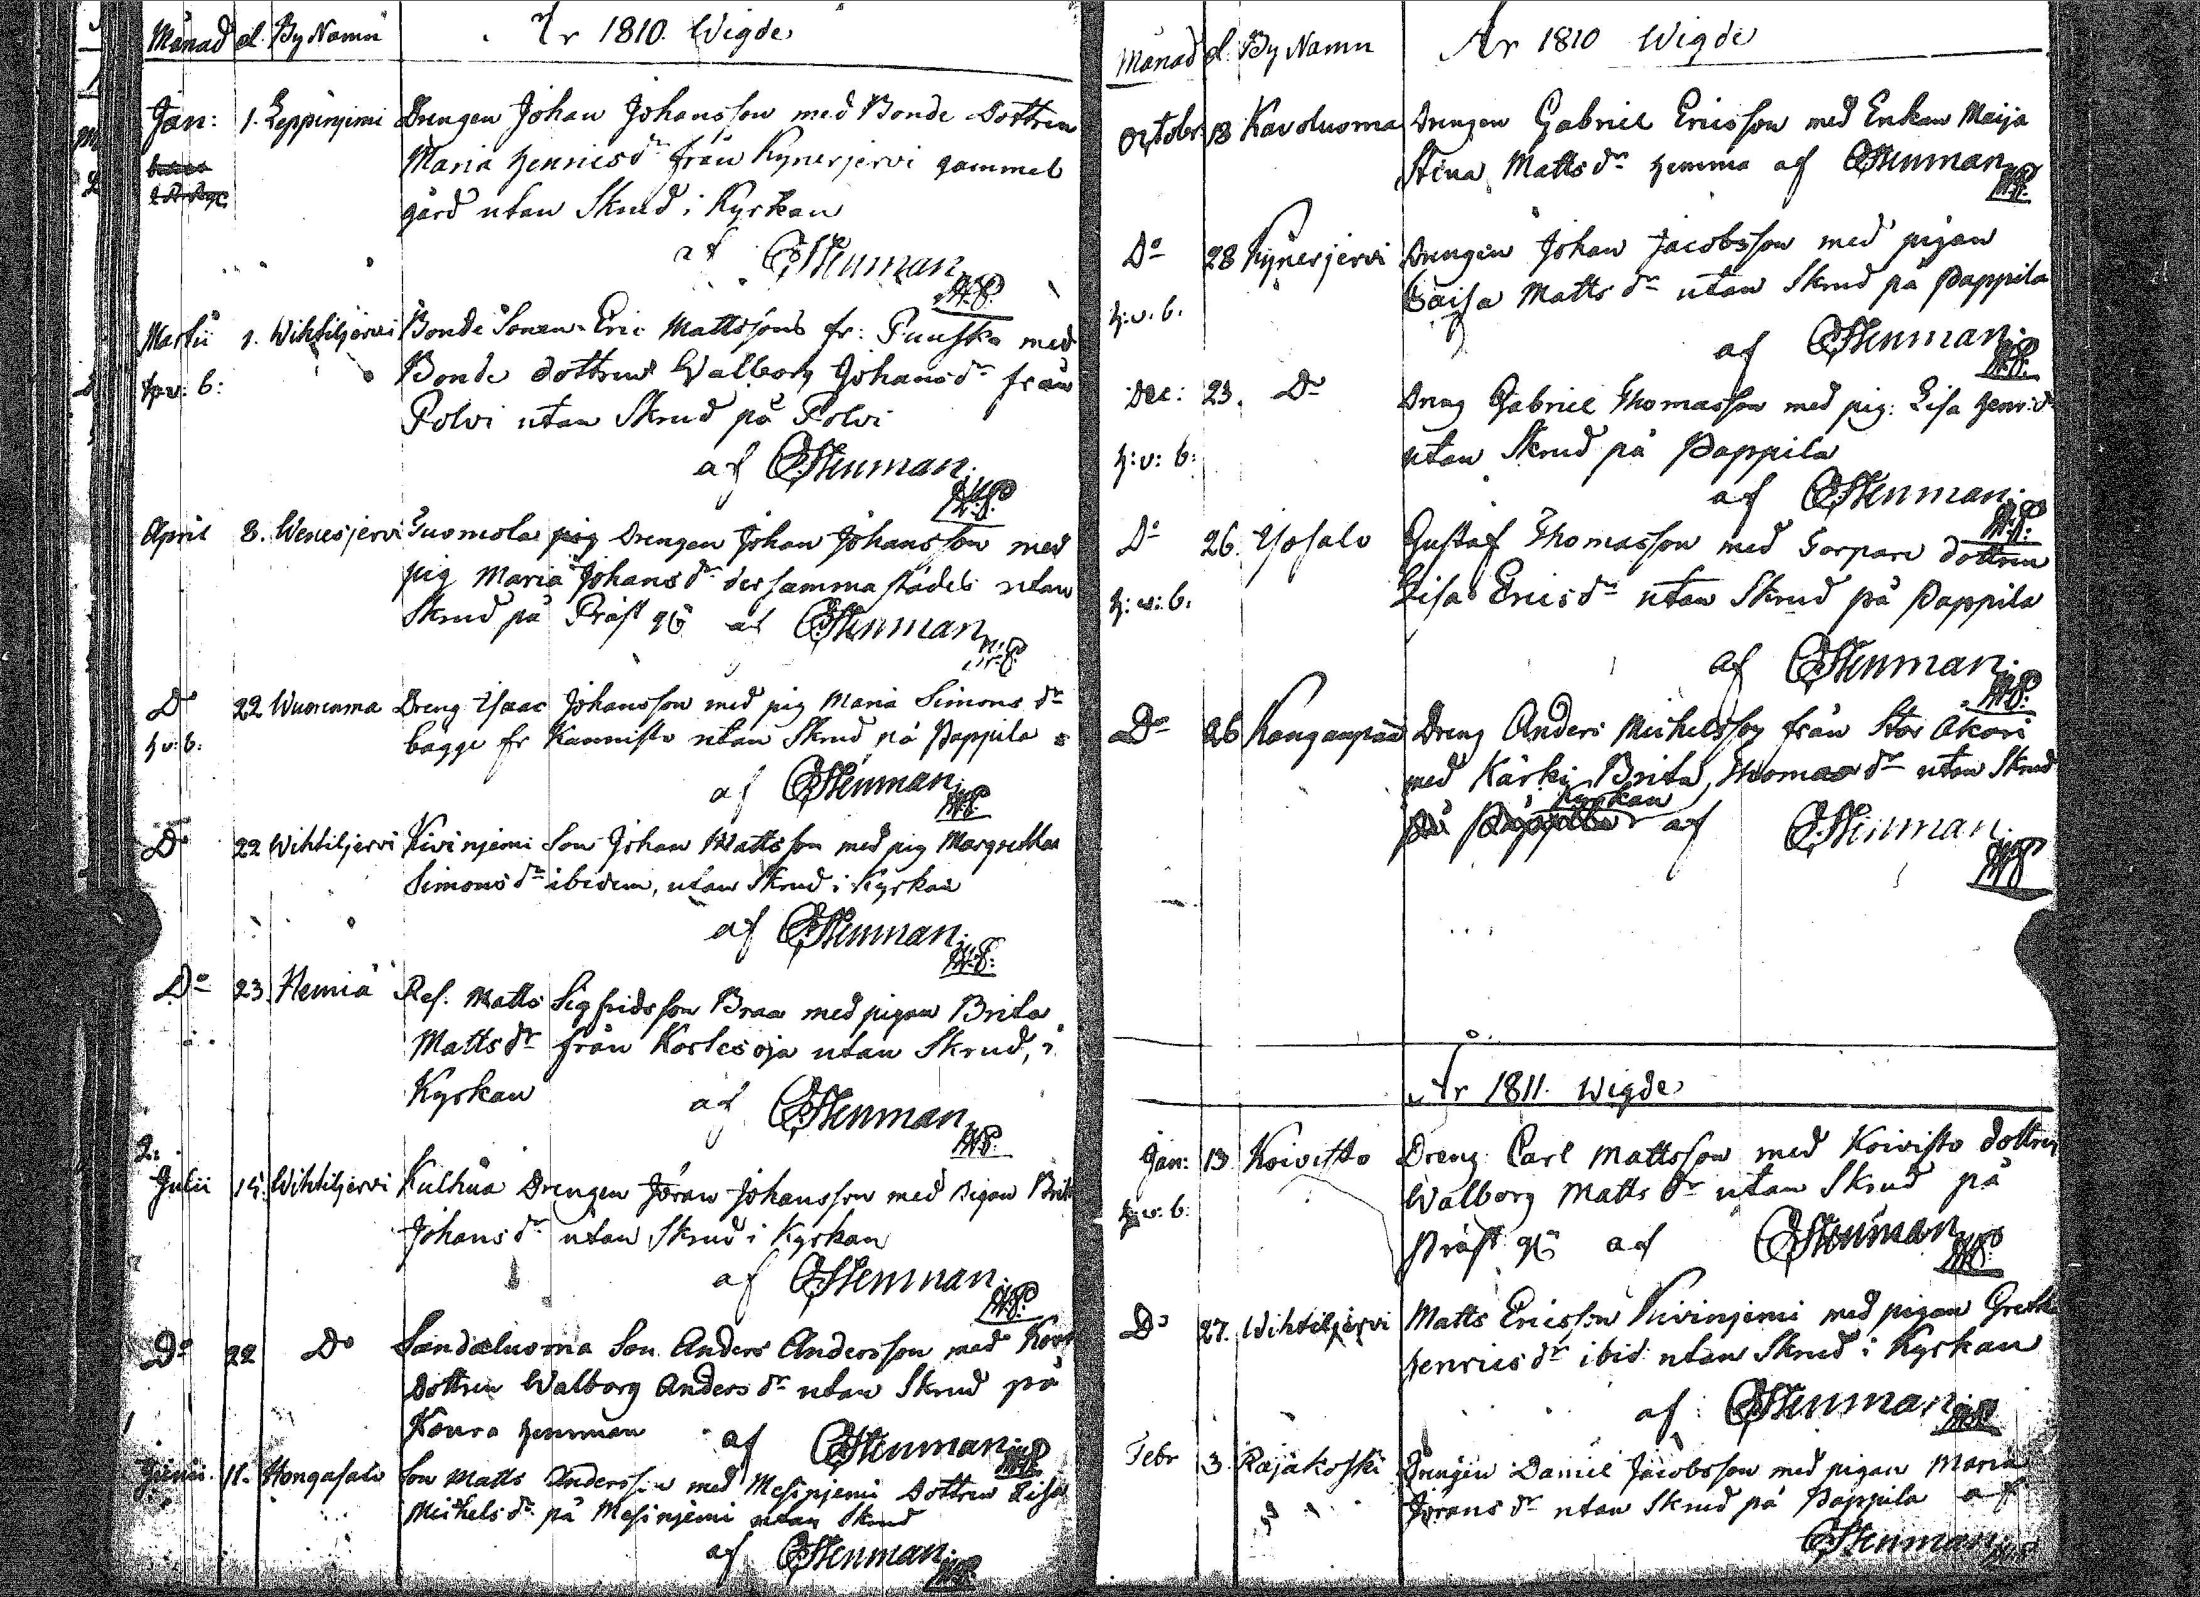 Månad d. By Namn År 1810. Wigde
Jan: 1. Leppinjemi Drengen Johan Johansson med Bonde Dottren
Maria Henricsdr från Kynerjervi gammel
gård utan Skrud i Kyrkan
af CJStenman
Martii 1. Wihtiljervi Bonde Sonen Eric Mattsson fr: Puuska med
h: v: b: Bonde dottren Walborg Johansdr från
Polvi utan Skrud på Polvi
af CJStenman
April 8. Wenesjervi Tuomola pig Drengen Johan Johansson med
pig Maria Johansdr dersammastädes utan
Skrud på Präst gd af CJStenman
Do 22 Wuorenma Dreng Isaac Johansson med pig Maria Simonsdr
h: v: b: bägge fr Kannisto utan Skrud på Pappila
af CJStenman
Do 22 Wihtiljervi Kivinjemi Son Johan Mattsson med pig Margretha
Simonsdr ibidem, utan Skrud i Kyrkan
af CJStenman
Do 23. Hemiä Ref. Matts Sigfridsson Braa med pigan Brita
Mattsdr från Kortesoja utan Skrud, i
Kyrkan af CJStenman
Julii 15. Wihtiljervi Kulhua Drengen Jöran Johansson med pigan Brit
Johansdr utan Skrud i Kyrkan
af CJStenman
Do 22 Do Sandaluoma Son Anders Andersson med
Dottren Walborg Andersdr utan Skrud på
Koura hemman af CJStenman
Junii. 11. Hongasalo Son Matts Andersson med Mesinjemi Dottren Lisa
Michelsdr på Mesinjemi utan Skrud
af CJStenman
Månad d. By Namn År 1810 Wigde
Octobr 18 Kavoluoma Drengen Gabriel Ericsson med Enkan Maija
Stina Mattsdr hemma af CJStenman
Do 28 Kynerjervi Drengen Johan Jacobsson med pigan
h: v: b: Caisa Mattsdr utan Skrud på Pappila
af CJStenman
Dec: 23. Do Dreng Gabriel Thomasson med pig: Lisa Henr:dr
h: v: b: utan Skrud på Pappila
af CJStenman
Do 26. Ypsalo Gustaf Thomasson med Torpare dottren
h: v: b: Lisa Ericsdr utan Skrud på Pappila
af CJStenman
Do 26 Kanganpää Dreng Anders Michelsson från Stor Akari
med Kärki Brita Thomasdr utan Skrud
Kyrkan
på Pappila af CJStenman
År 1811. Wigde
Jan: 13 Koivisto Dreng Carl Mattsson med Koivisto dottren
h: v: b: Walborg Mattsdr utan Skrud på
Präst gd af CJStenman
Do 27. Wihtiljervi Matts Ericsson Kivinjemi med pigan Gretha
Henricsdr ibid: utan Skrud i Kyrkan
af CJStenman
Febr 3. Rajakoski Drengen Daniel Jacobsson med pigan Maria
Jöransdr utan Skrud på Pappila af
CJStenman